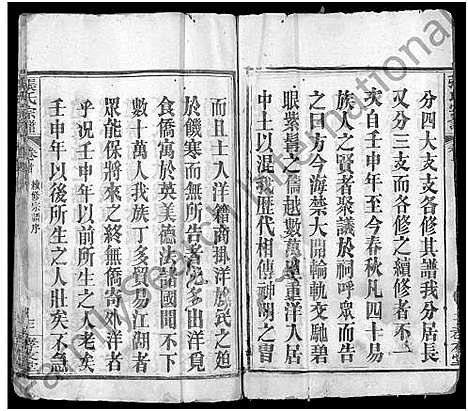 分四大支支各修其譜我分居長
而又分三支各修之續修者不一
次自壬申年至今春秋凡四十易
族人之賢者聚議於祠呼眾而告
之曰方今海禁大開輪軌交馳碧
眼紫髯之儔越數萬里重洋入居
中土以混我歷代相傳神湖之冑
而且士入洋籍商掛洋旗民之迫
於饑寒而無所告者况多出洋覓
食僑寓於英美德法諸國聞不下
數十萬人我族丁多貿易江湖者
眾能保將來之終無僑寄外洋者
乎况壬申年以前所生之人老矣
壬申年以後所生之人壯矣不急
張氏宗譜
卷首
續修宗譜序